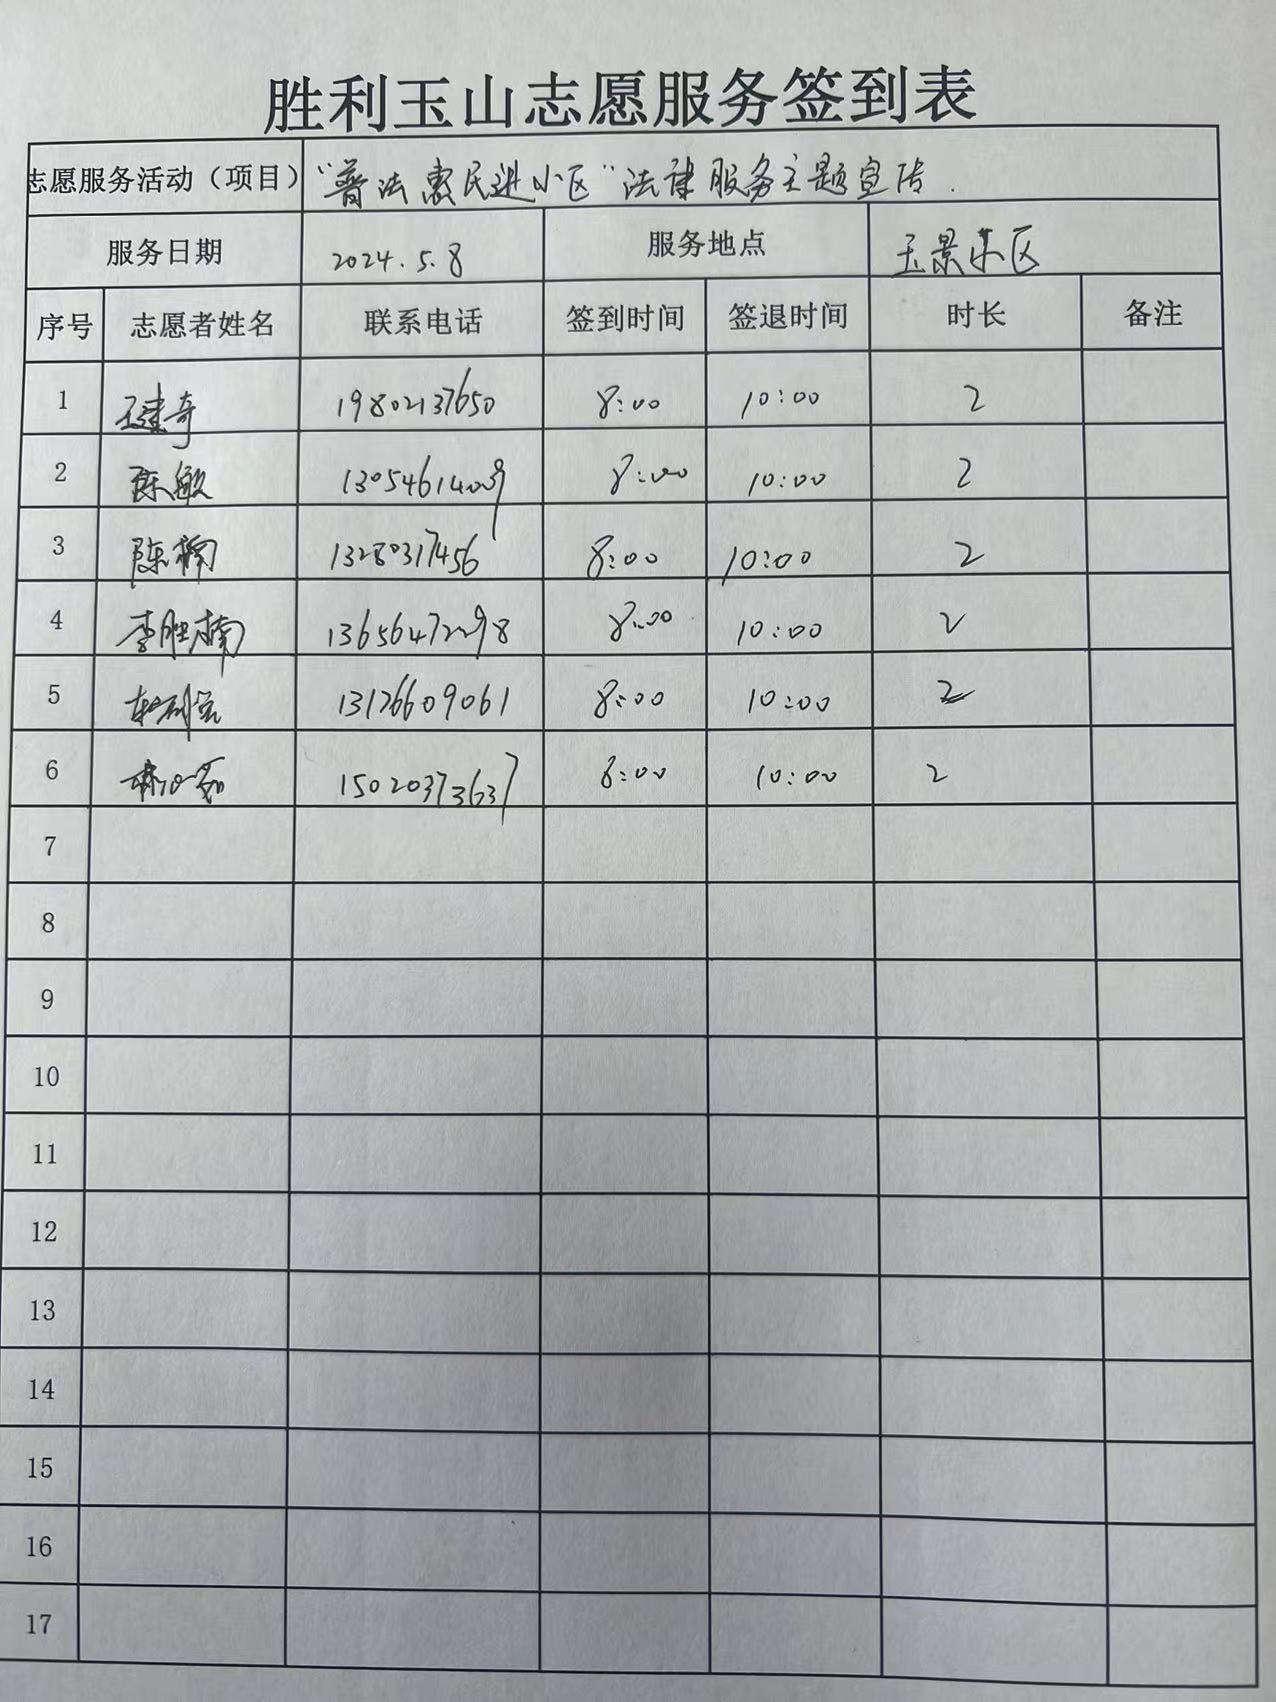 胜利玉山志愿服务签到表
志愿服务活动（项目） “普法惠民进小区”法律服务主题宣传.
服务日期 2024.5.8 服务地点 玉景小区
序号 志愿者姓名 联系电话 签到时间 签退时间 时长 备注
1 王建奇 19802137650 8:00 10:00 2
2 陈敏 13054614009 8:00 10:00 2
3 陈楠 13280317456 8:00 10:00 2
4 李胜楠 13656472298 8:00 10:00 2
5 13126609061 8:00 10:00 2
6 15020373637 8:00 10:00 2
7
8
9
10
11
12
13
14
15
16
17